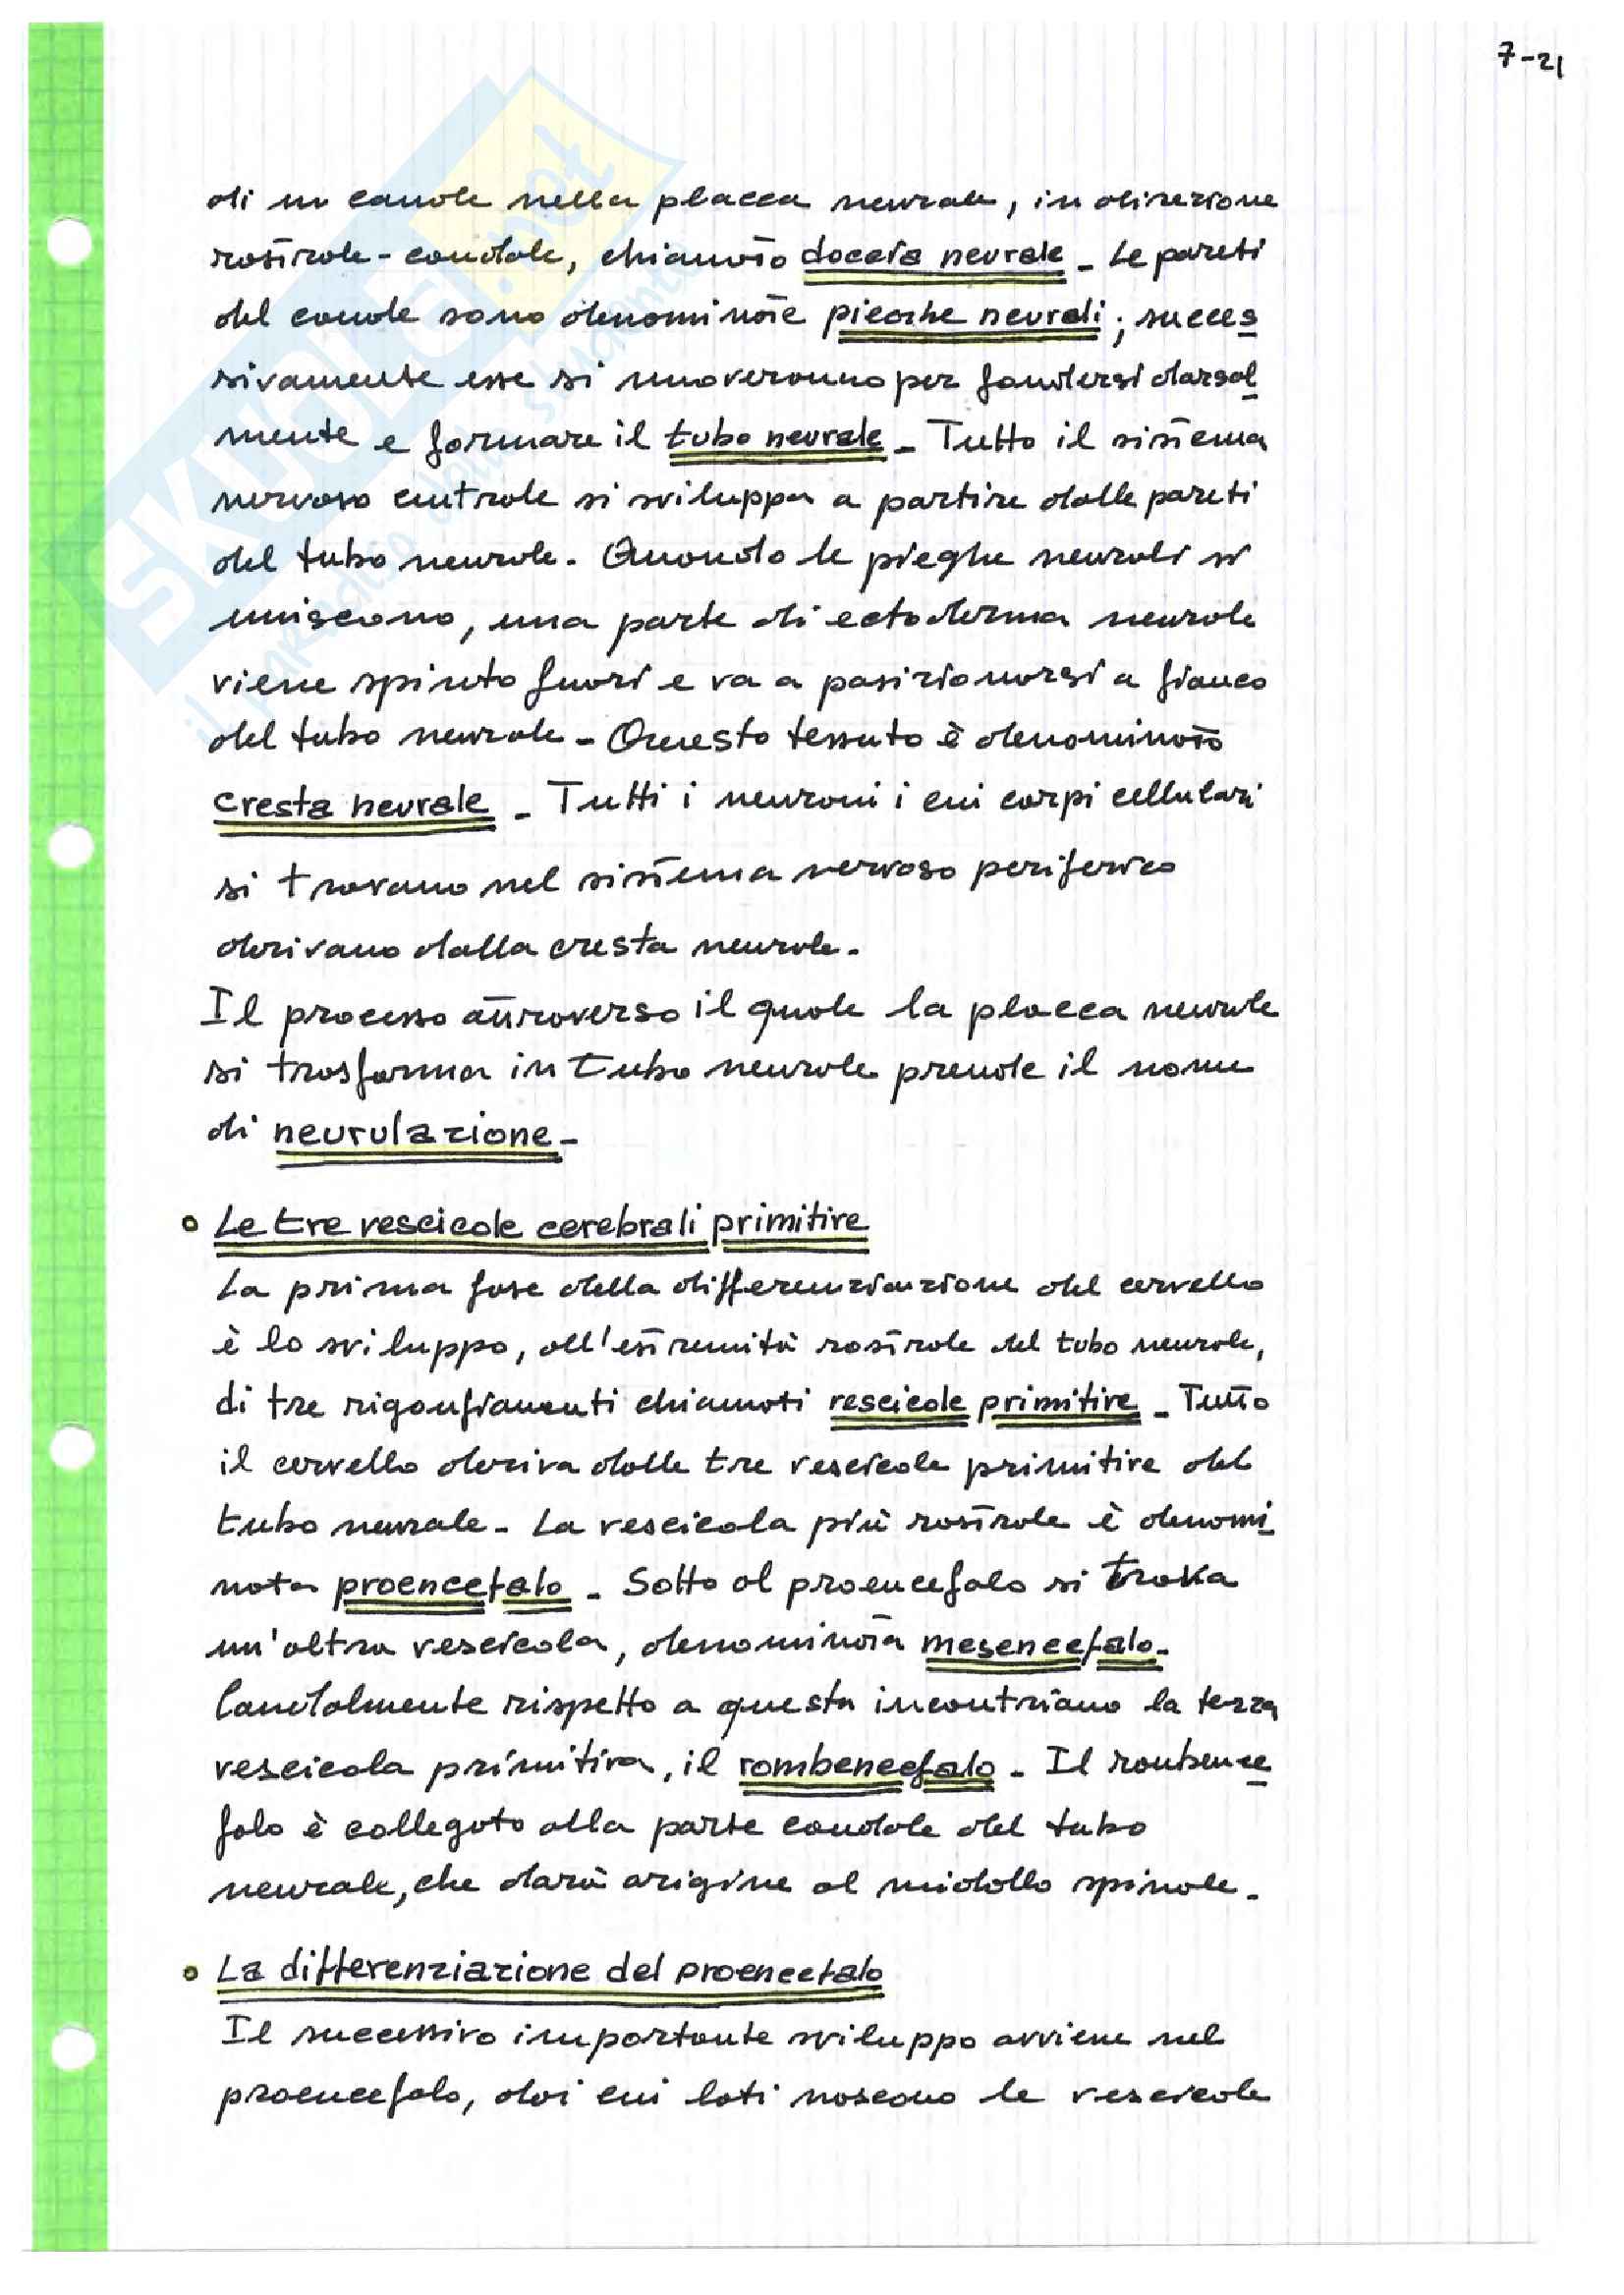 7-21
di un canale nella placca neurale, in direzione
rostrale-caudale, chiamato doccia neurale - Le pareti
del canale sono denominate pieghe neurali; succes
sivamente esse si muoveranno per fondersi dorsal
mente e formare il tubo neurale - Tutto il sistema
nervoso centrale si sviluppa a partire dalle pareti
del tubo neurale. Quando le pieghe neurali si
uniscono, una parte di ectoderma neurale
viene spinto fuori e va a posizionarsi a fianco
del tubo neurale - Questo tessuto è denominato
cresta neurale - Tutti i neuroni i cui corpi cellulari
si trovano nel sistema nervoso periferico
derivano dalla cresta neurale.
Il processo attraverso il quale la placca neurale
si trasforma in tubo neurale prende il nome
di neurulazione -
Le tre vescicole cerebrali primitive
La prima fase della differenziazione del cervello
è lo sviluppo, all'estremità rostrale del tubo neurale,
di tre rigonfiamenti chiamati vescicole primitive - Tutto
il cervello deriva dalle tre vescicole primitive del
tubo neurale - La vescicola più rostrale è denomi
nata proencefalo - Sotto al proencefalo si trova
un'altra vescicola, denominata mesencefalo -
Caudalmente rispetto a questa incontriamo la terza
vescicola primitiva, il rombencefalo - Il rombence
falo è collegato alla parte caudale del tubo
neurale, che darà origine al midollo spinale -
La differenziazione del proencefalo
Il successivo importante sviluppo avviene nel
proencefalo, dai cui lati nascono le vescicole
SKUOLA.net
il paradiso dello studente